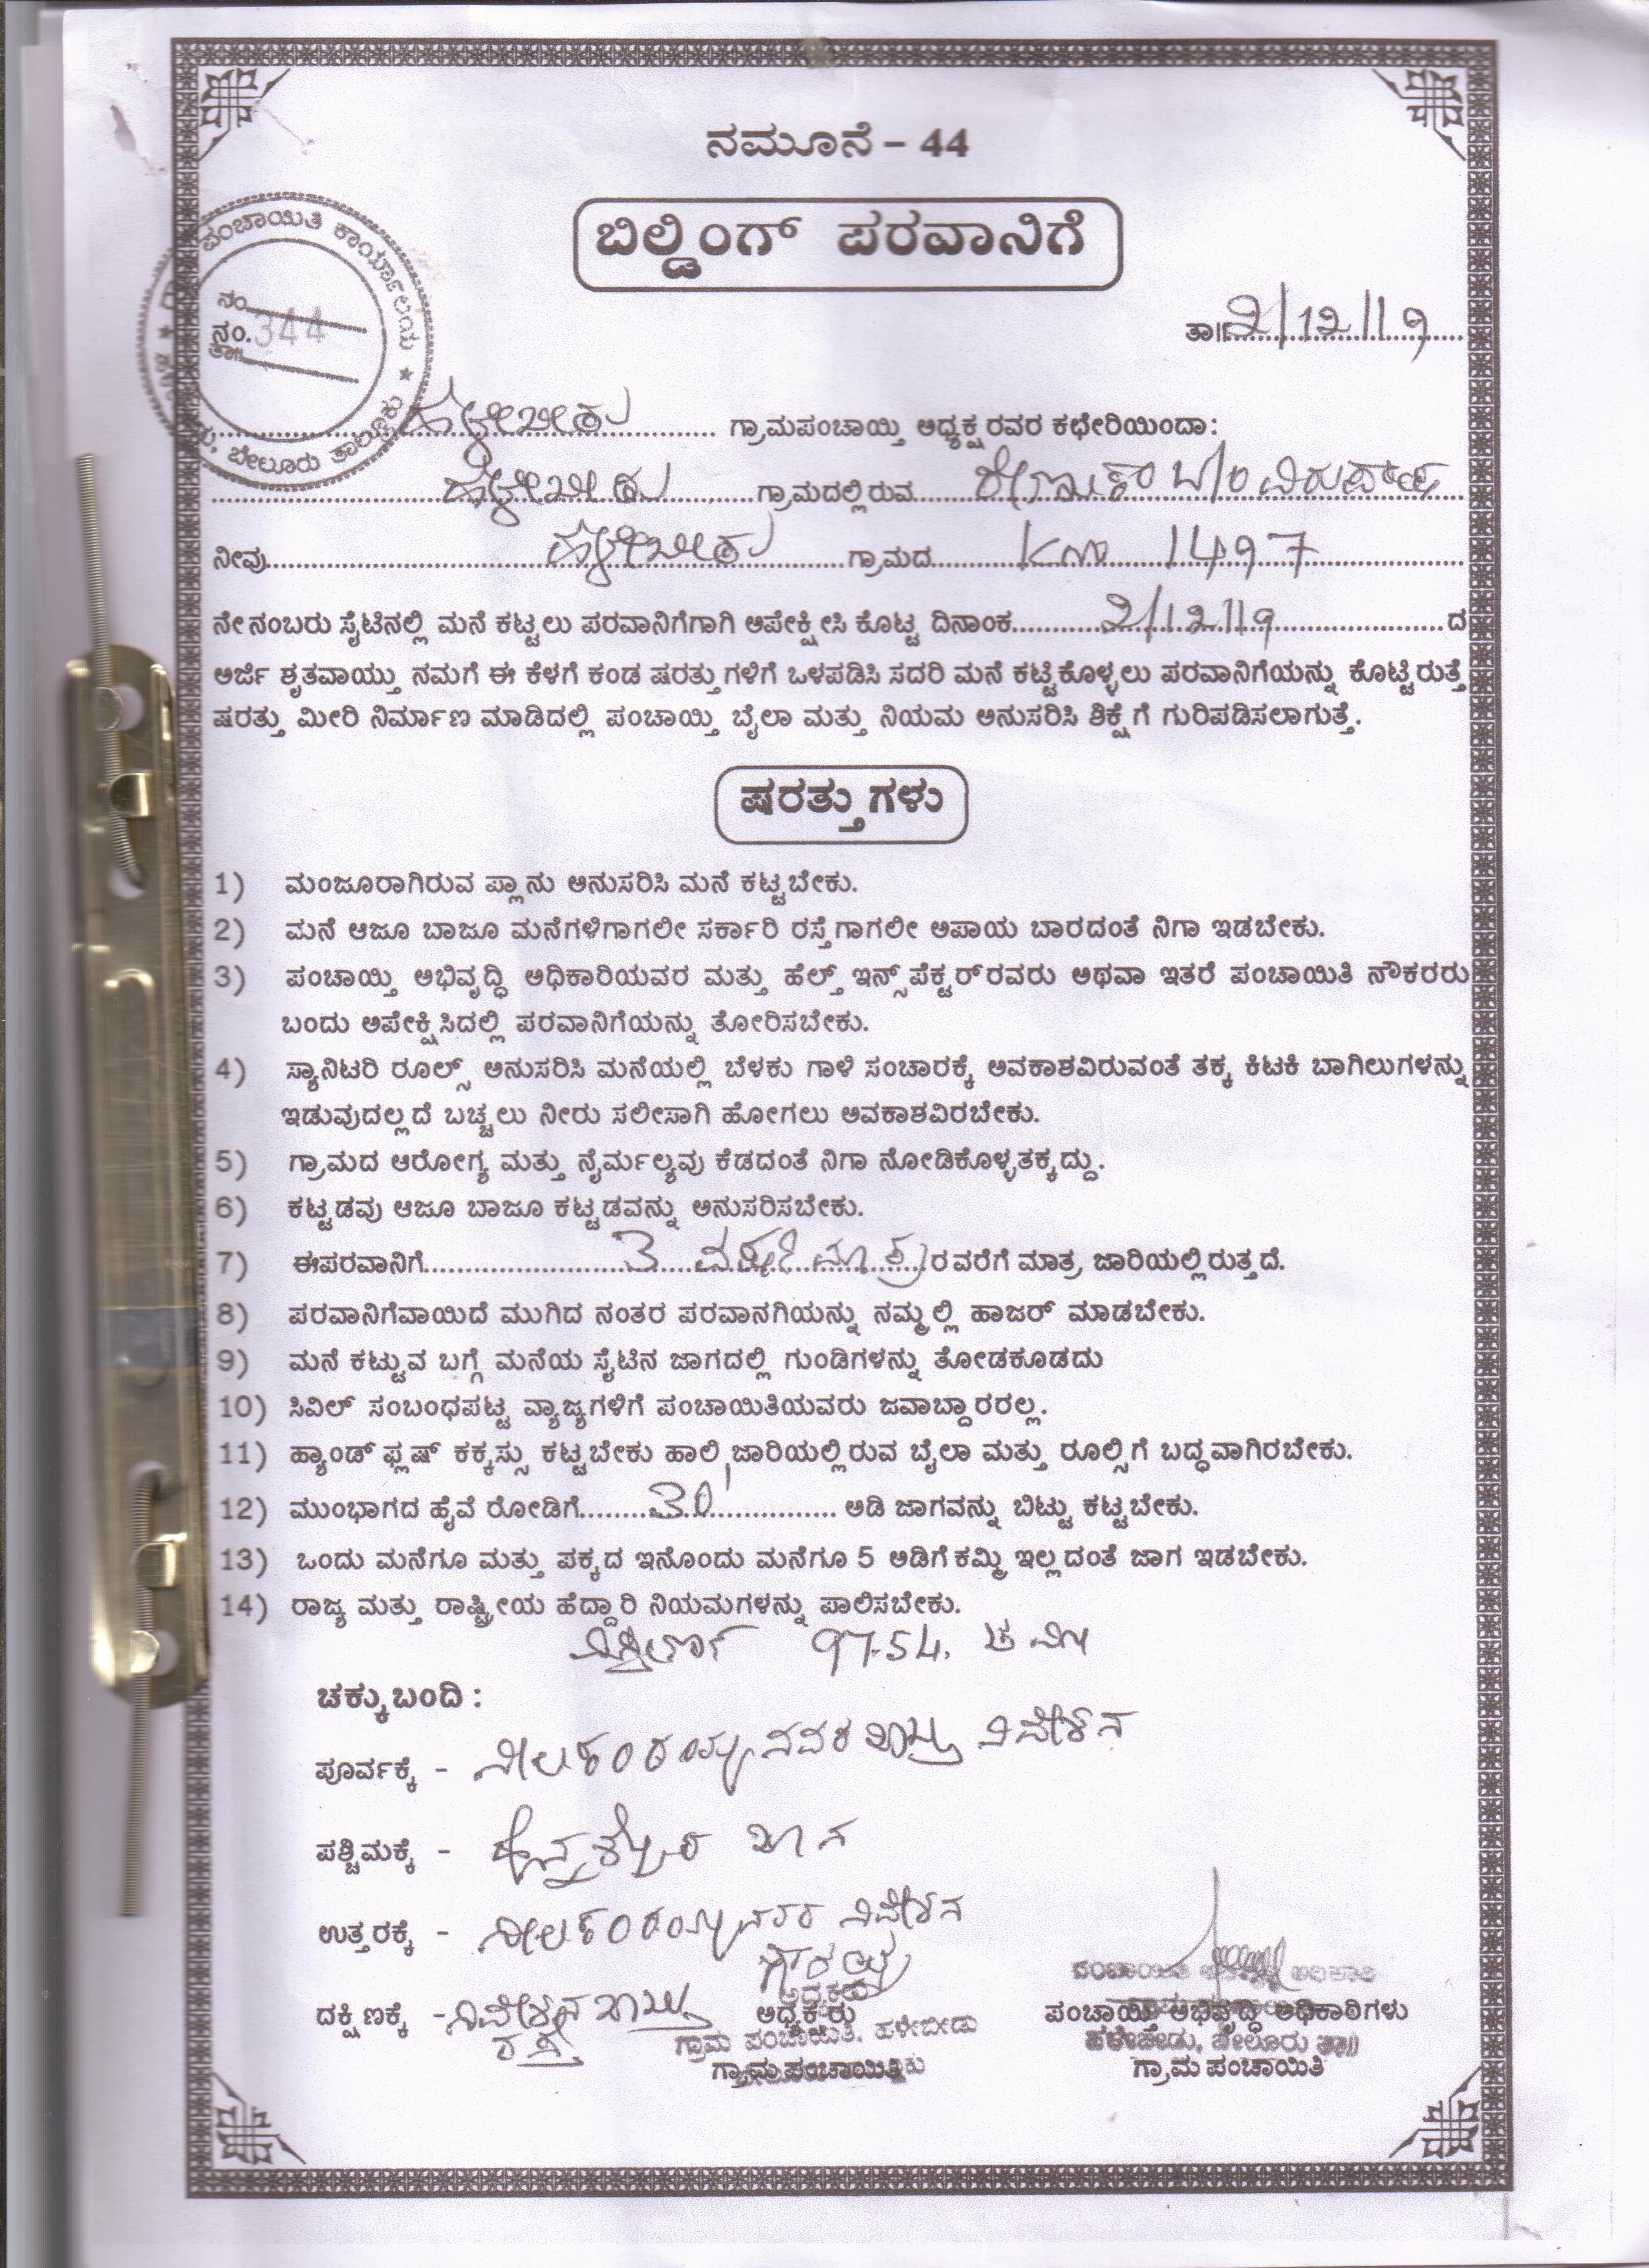 ನಮೂನೆ - 44
ಬಿಲ್ಡಿಂಗ್ ಪರವಾನಿಗೆ
ಪಂಚಾಯಿತಿ ಕಾರ್ಯಾಲಯ ★ ಬೇಲೂರು ತಾಲ್ಲೂಕು
ನಂ.
ನಂ. 344
ತಾ॥
ತಾ॥ 2/12/19
ಹಳೇಬೀಡು ಗ್ರಾಮಪಂಚಾಯ್ತಿ ಅಧ್ಯಕ್ಷರವರ ಕಛೇರಿಯಿಂದಾ:
ಹಳೇಬೀಡು ಗ್ರಾಮದಲ್ಲಿರುವ ರೇಣುಕಾ
ನೀವು ಹಳೇಬೀಡು ಗ್ರಾಮದ 1497
ನೇ ನಂಬರು ಸೈಟಿನಲ್ಲಿ ಮನೆ ಕಟ್ಟಲು ಪರವಾನಿಗೆಗಾಗಿ ಅಪೇಕ್ಷೀಸಿ ಕೊಟ್ಟ ದಿನಾಂಕ 2/12/19 ದ
ಅರ್ಜಿ ಶೃತವಾಯ್ತು ನಮಗೆ ಈ ಕೆಳಗೆ ಕಂಡ ಷರತ್ತುಗಳಿಗೆ ಒಳಪಡಿಸಿ ಸದರಿ ಮನೆ ಕಟ್ಟಿಕೊಳ್ಳಲು ಪರವಾನಿಗೆಯನ್ನು ಕೊಟ್ಟಿರುತ್ತೆ
ಷರತ್ತು ಮೀರಿ ನಿರ್ಮಾಣ ಮಾಡಿದಲ್ಲಿ ಪಂಚಾಯ್ತಿ ಬೈಲಾ ಮತ್ತು ನಿಯಮ ಅನುಸರಿಸಿ ಶಿಕ್ಷೆಗೆ ಗುರಿಪಡಿಸಲಾಗುತ್ತೆ.
ಷರತ್ತುಗಳು
1) ಮಂಜೂರಾಗಿರುವ ಪ್ಲಾನು ಅನುಸರಿಸಿ ಮನೆ ಕಟ್ಟಬೇಕು.
2) ಮನೆ ಆಜೂ ಬಾಜೂ ಮನೆಗಳಿಗಾಗಲೀ ಸರ್ಕಾರಿ ರಸ್ತೆಗಾಗಲೀ ಅಪಾಯ ಬಾರದಂತೆ ನಿಗಾ ಇಡಬೇಕು.
3) ಪಂಚಾಯ್ತಿ ಅಭಿವೃದ್ಧಿ ಅಧಿಕಾರಿಯವರ ಮತ್ತು ಹೆಲ್ತ್ ಇನ್ಸ್‌ಪೆಕ್ಟರ್‌ರವರು ಅಥವಾ ಇತರೆ ಪಂಚಾಯಿತಿ ನೌಕರರು
ಬಂದು ಅಪೇಕ್ಷಿಸಿದಲ್ಲಿ ಪರವಾನಿಗೆಯನ್ನು ತೋರಿಸಬೇಕು.
4) ಸ್ಯಾನಿಟರಿ ರೂಲ್ಸ್ ಅನುಸರಿಸಿ ಮನೆಯಲ್ಲಿ ಬೆಳಕು ಗಾಳಿ ಸಂಚಾರಕ್ಕೆ ಅವಕಾಶವಿರುವಂತೆ ತಕ್ಕ ಕಿಟಕಿ ಬಾಗಿಲುಗಳನ್ನು
ಇಡುವುದಲ್ಲದೆ ಬಚ್ಚಲು ನೀರು ಸಲೀಸಾಗಿ ಹೋಗಲು ಅವಕಾಶವಿರಬೇಕು.
5) ಗ್ರಾಮದ ಆರೋಗ್ಯ ಮತ್ತು ನೈರ್ಮಲ್ಯವು ಕೆಡದಂತೆ ನಿಗಾ ನೋಡಿಕೊಳ್ಳತಕ್ಕದ್ದು.
6) ಕಟ್ಟಡವು ಆಜೂ ಬಾಜೂ ಕಟ್ಟಡವನ್ನು ಅನುಸರಿಸಬೇಕು.
7) ಈಪರವಾನಿಗೆ 3 ವರ್ಷ ಮಾತ್ರ ರವರೆಗೆ ಮಾತ್ರ ಜಾರಿಯಲ್ಲಿರುತ್ತದೆ.
8) ಪರವಾನಿಗೆವಾಯಿದೆ ಮುಗಿದ ನಂತರ ಪರವಾನಗಿಯನ್ನು ನಮ್ಮಲ್ಲಿ ಹಾಜರ್ ಮಾಡಬೇಕು.
9) ಮನೆ ಕಟ್ಟುವ ಬಗ್ಗೆ ಮನೆಯ ಸೈಟಿನ ಜಾಗದಲ್ಲಿ ಗುಂಡಿಗಳನ್ನು ತೋಡಕೂಡದು
10) ಸಿವಿಲ್ ಸಂಬಂಧಪಟ್ಟ ವ್ಯಾಜ್ಯಗಳಿಗೆ ಪಂಚಾಯಿತಿಯವರು ಜವಾಬ್ದಾರರಲ್ಲ.
11) ಹ್ಯಾಂಡ್ ಫ್ಲಷ್ ಕಕ್ಕಸ್ಸು ಕಟ್ಟಬೇಕು ಹಾಲಿ ಜಾರಿಯಲ್ಲಿರುವ ಬೈಲಾ ಮತ್ತು ರೂಲ್ಸಿಗೆ ಬದ್ಧವಾಗಿರಬೇಕು.
12) ಮುಂಭಾಗದ ಹೈವೆ ರೋಡಿಗೆ 30' ಅಡಿ ಜಾಗವನ್ನು ಬಿಟ್ಟು ಕಟ್ಟಬೇಕು.
13) ಒಂದು ಮನೆಗೂ ಮತ್ತು ಪಕ್ಕದ ಇನೊಂದು ಮನೆಗೂ 5 ಅಡಿಗೆ ಕಮ್ಮಿ ಇಲ್ಲದಂತೆ ಜಾಗ ಇಡಬೇಕು.
14) ರಾಜ್ಯ ಮತ್ತು ರಾಷ್ಟ್ರೀಯ ಹೆದ್ದಾರಿ ನಿಯಮಗಳನ್ನು ಪಾಲಿಸಬೇಕು.
ವಿಸ್ತೀರ್ಣ 97.54. ಚ ಮೀ
ಚಕ್ಕುಬಂದಿ :
ಪೂರ್ವಕ್ಕೆ - ನೀಲಕಂಠಯ್ಯನವರ ಖಾಲಿ ನಿವೇಶನ
ಪಶ್ಚಿಮಕ್ಕೆ -
ಉತ್ತರಕ್ಕೆ - ನೀಲಕಂಠಯ್ಯನವರ ನಿವೇಶನ
ದಕ್ಷಿಣಕ್ಕೆ - ನಿವೇಶನ
ರಸ್ತೆ
ಅಧ್ಯಕ್ಷರು
ಅಧ್ಯಕ್ಷರು
ಗ್ರಾಮ ಪಂಚಾಯಿತಿ, ಹಳೇಬೀಡು
ಗ್ರಾಮ ಪಂಚಾಯಿತಿ
ಪಂಚಾಯಿತಿ ಅಭಿವೃದ್ಧಿ ಅಧಿಕಾರಿ
ಪಂಚಾಯ್ತಿ ಅಭಿವೃದ್ಧಿ ಅಧಿಕಾರಿಗಳು
ಹಳೇಬೀಡು, ಬೇಲೂರು ತಾ॥
ಗ್ರಾಮ ಪಂಚಾಯಿತಿ